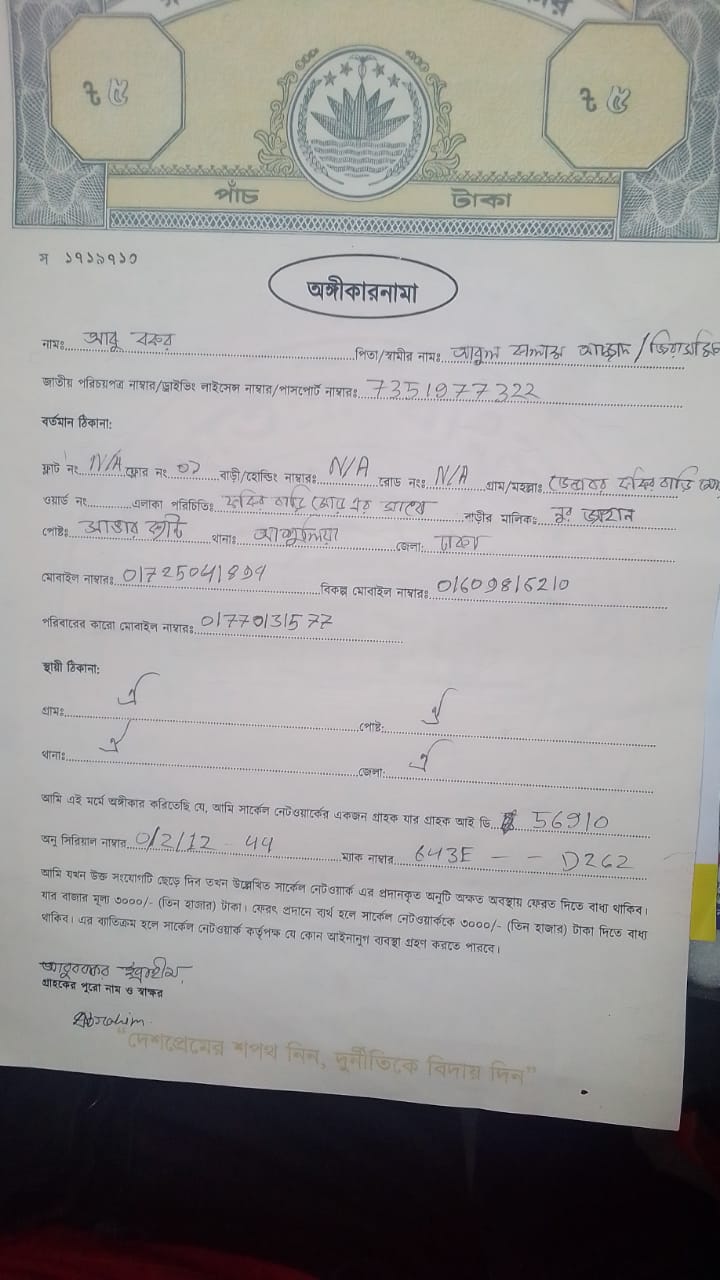 ৳ ৫
৳ ৫
পাঁচ টাকা
স ১৭১৯৭১০
অঙ্গীকারনামা
নামঃ আবু বকর পিতা/স্বামীর নামঃ আবুল কালাম আজাদ /
জাতীয় পরিচয়পত্র নাম্বার/ড্রাইভিং লাইসেন্স নাম্বার/পাসপোর্ট নাম্বারঃ 7351977322
বর্তমান ঠিকানা:
ফ্লাট নং N/A ফ্লোর নং ০১ বাড়ী/হোল্ডিং নাম্বারঃ N/A রোড নংঃ N/A গ্রাম/মহল্লাঃ ফকির বাড়ি
ওয়ার্ড নং এলাকা পরিচিতিঃ ফকির বাড়ি মোড় এর সাথে বাড়ীর মালিক: নুর জাহান
পোষ্টঃ থানাঃ আশুলিয়া জেলা: ঢাকা
মোবাইল নাম্বারঃ 01725041894 বিকল্প মোবাইল নাম্বারঃ 01609816210
পরিবারের কারো মোবাইল নাম্বারঃ 01770131577
স্থায়ী ঠিকানা:
গ্রামঃ ঐ পোষ্ট: ঐ
থানাঃ ঐ জেলা: ঐ
আমি এই মর্মে অঙ্গীকার করিতেছি যে, আমি সার্কেল নেটওয়ার্কের একজন গ্রাহক যার গ্রাহক আই ডি 56910
অনু সিরিয়াল নাম্বার 0/2/12 - 44 ম্যাক নাম্বার 643E - - D262
আমি যখন উক্ত সংযোগটি ছেড়ে দিব তখন উল্লেখিত সার্কেল নেটওয়ার্ক এর প্রদানকৃত অনুটি অক্ষত অবস্থায় ফেরত দিতে বাধ্য থাকিব।
যার বাজার মূল্য ৩০০০/- (তিন হাজার) টাকা। ফেরৎ প্রদানে ব্যর্থ হলে সার্কেল নেটওয়ার্ককে ৩০০০/- (তিন হাজার) টাকা দিতে বাধ্য
থাকিব। এর ব্যতিক্রম হলে সার্কেল নেটওয়ার্ক কর্তৃপক্ষ যে কোন আইনানুগ ব্যবস্থা গ্রহণ করতে পারবে।
আবুবকর ইব্রাহীম
গ্রাহকের পুরো নাম ও স্বাক্ষর
"দেশপ্রেমের শপথ নিন, দুর্নীতিকে বিদায় দিন"